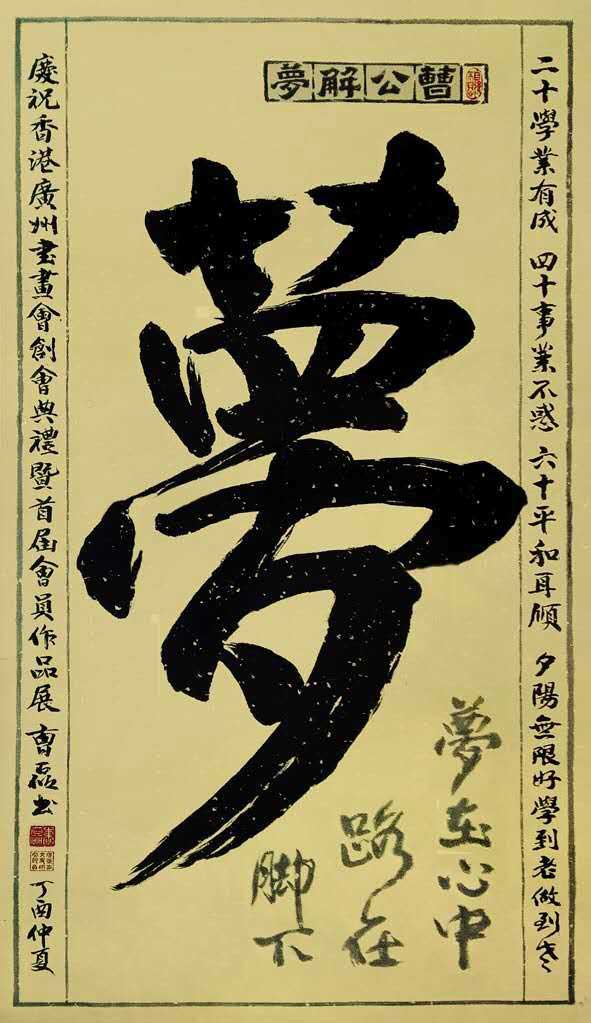 曹公解夢
二十學業有成 四十事業不惑 六十平和耳順 夕陽無限好學到老做到老
夢
夢在心中
路在
脚下
慶祝香港廣州書畫會創會典禮暨首届會員作品展 曹磊書
丁酉仲夏